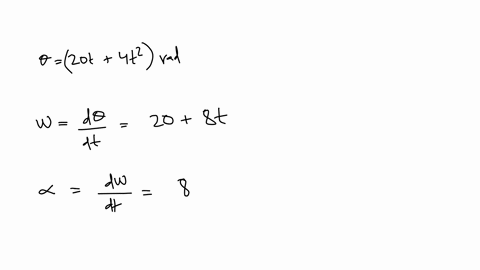 θ = (20t + 4t²) rad
ω = dθ/dt = 20 + 8t
α = dω/dt = 8